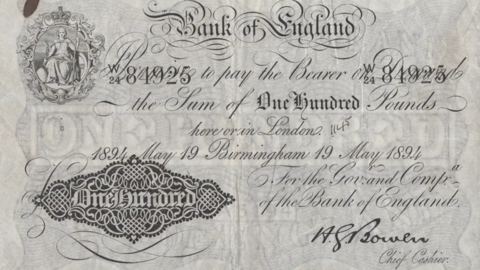 Bank of England
W/24 84925 W/24 84925
Promise to pay the Bearer on Demand
the Sum of One Hundred Pounds
here or in London
1894 May 19 Birmingham 19 May 1894
For the Govr. and Compa.
of the Bank of England.
One Hundred
H G Bowen
Chief Cashier.